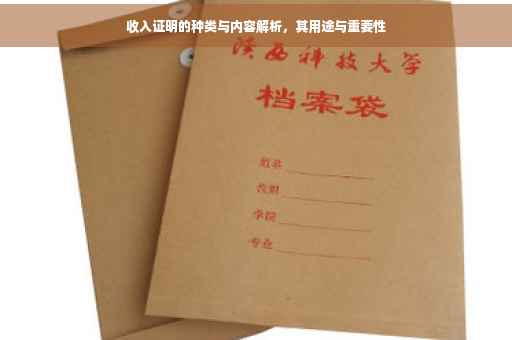 收入证明的种类与内容解析，其用途与重要性
陕西科技大学
档案袋
学院
专业